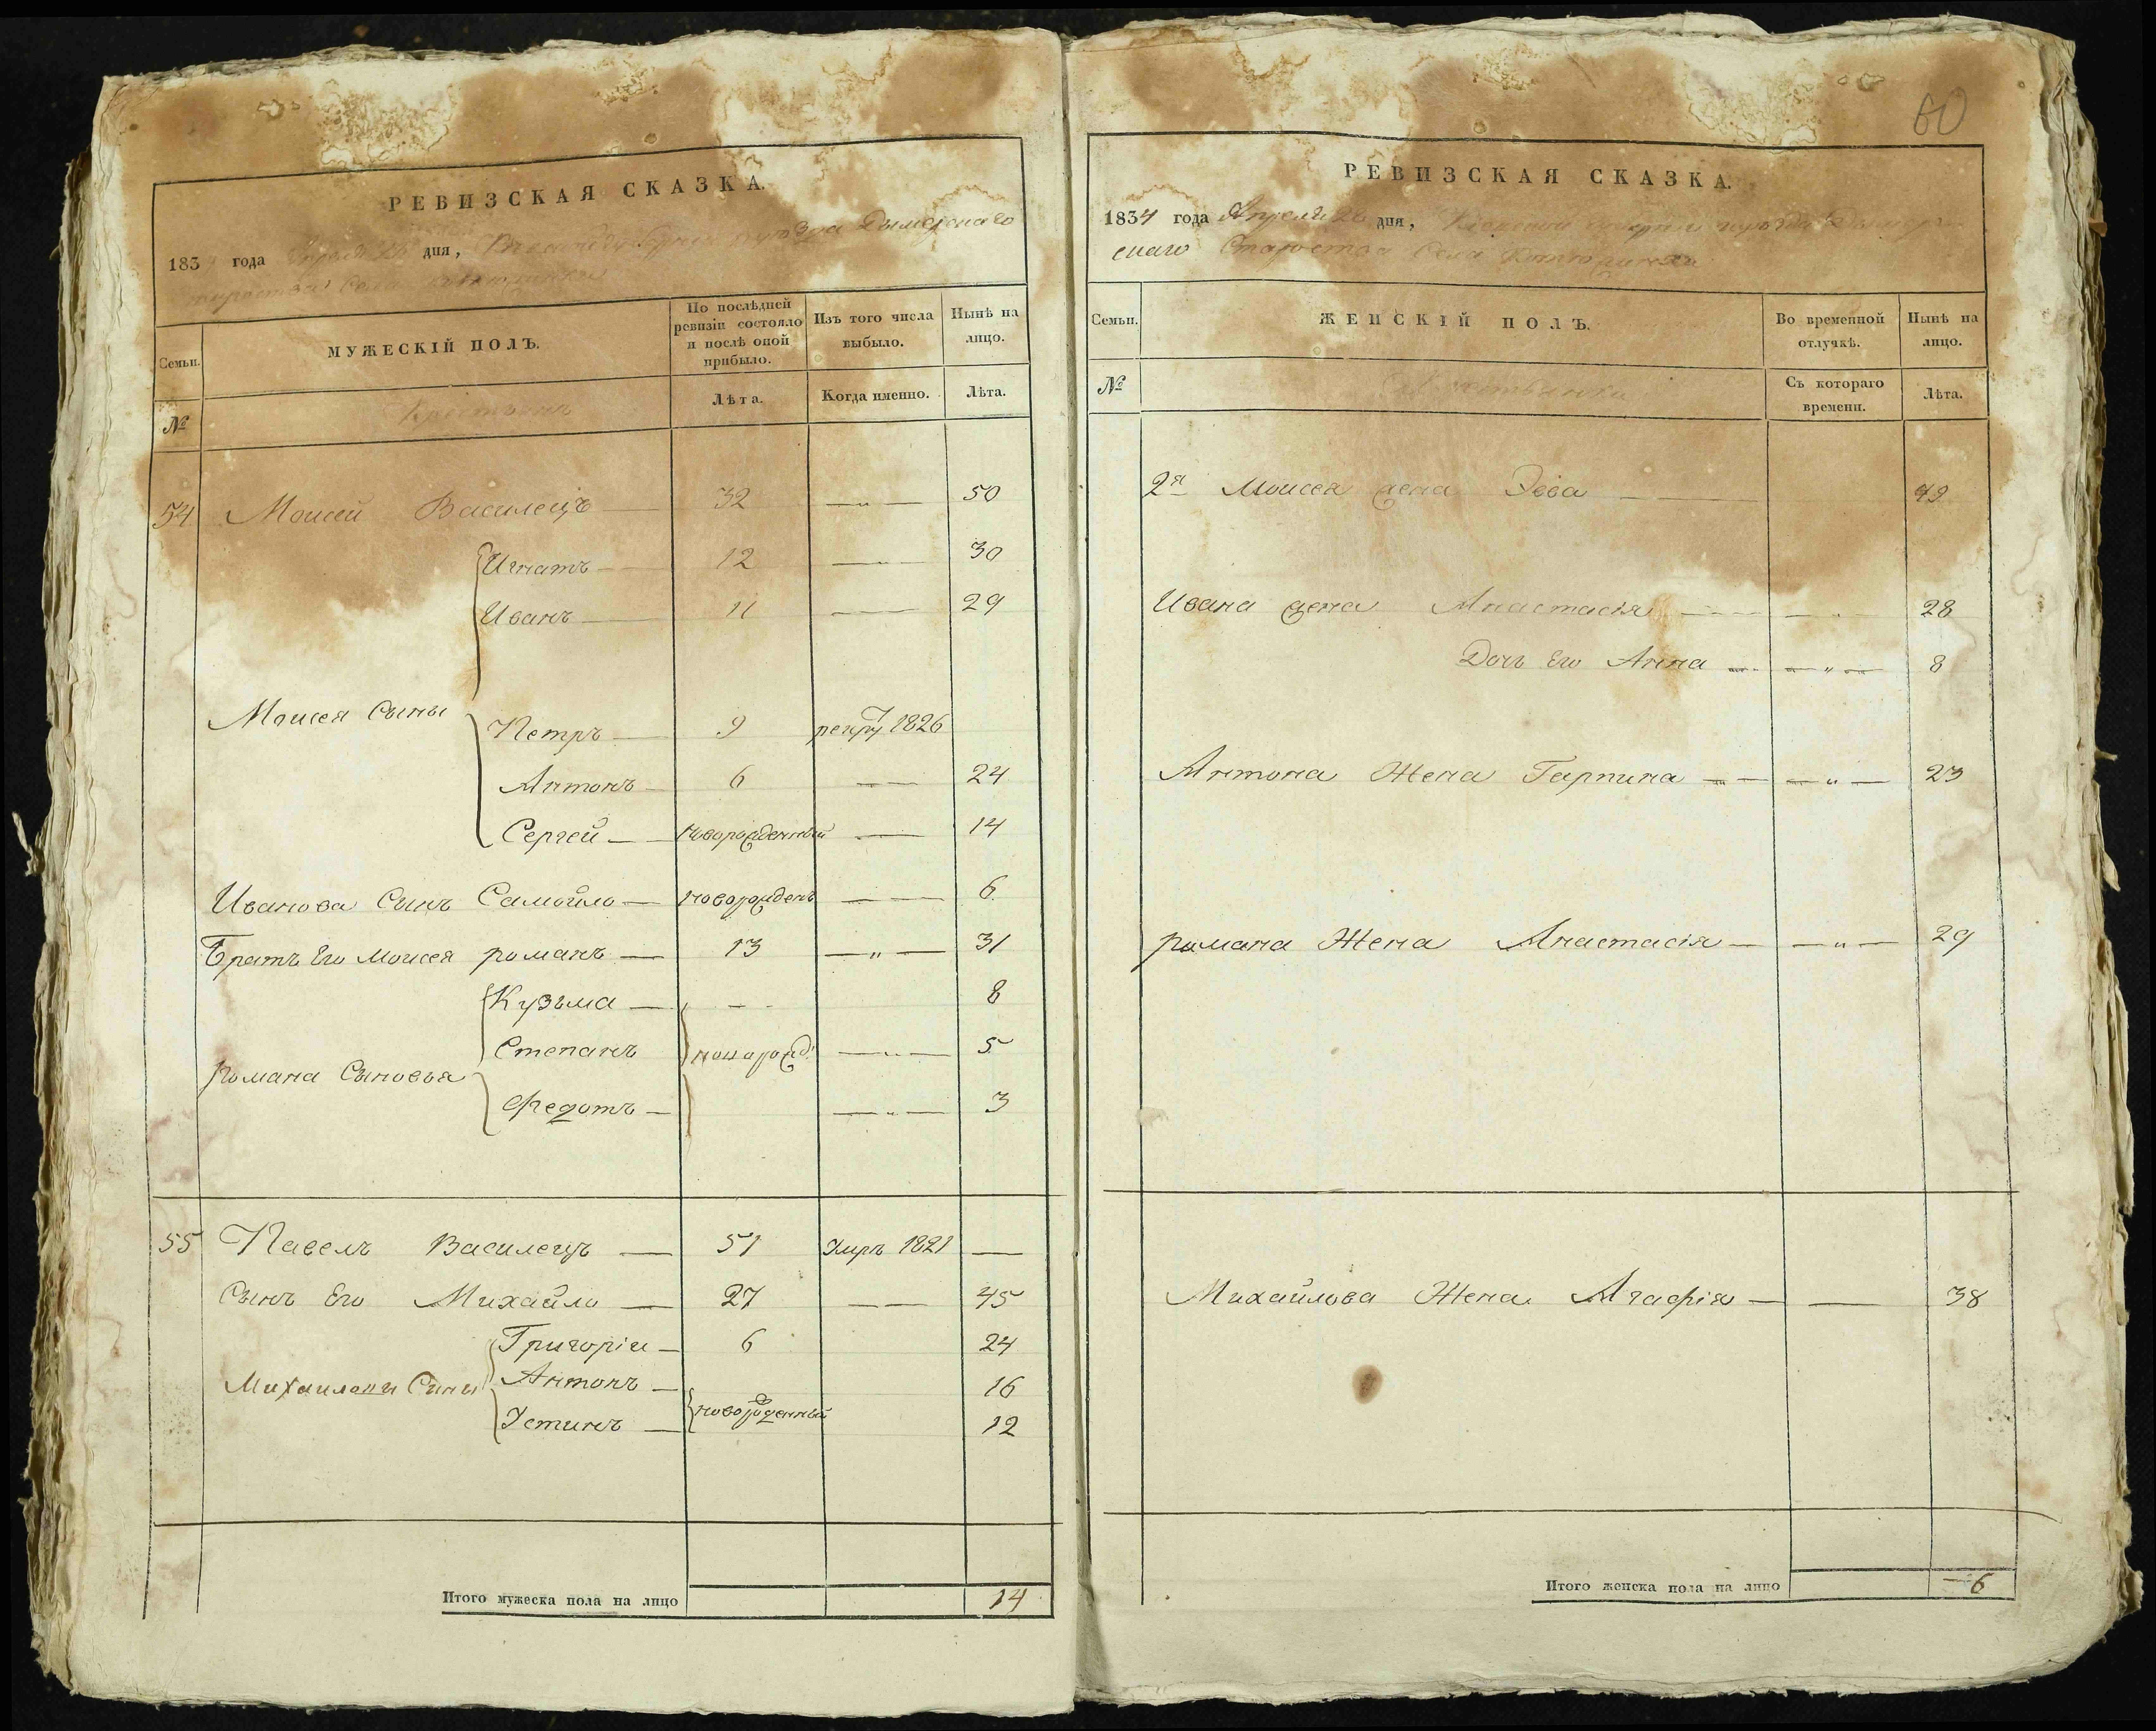 РЕВИЗСКАЯ СКАЗКА.
183 года дня, Дымерскаго
Села
Семьи.
МУЖЕСКІЙ ПОЛЪ.
По послѣдней ревизіи состояло и послѣ оной прибыло.
Изъ того числа выбыло.
Нынѣ на лицо.
№
Лѣта.
Когда именно.
Лѣта.
54 Моисей Василецъ — 32 — „ — 50
Игнатъ — 12 — 30
Иванъ — 11 — 29
Моисея Сыны
Петръ — 9 1826
Антонъ — 6 — 24
Сергей — новорожденный — 14
Иванова Сынъ Самойло — новорожденъ — 6
Братъ Его Моисея романъ — 13 — „ — 31
Кузьма — 8
Степанъ новорожд: — „ — 5
Романа Сыновья
Федотъ — — „ — 3
55 Павелъ Василецъ — 51 Умръ 1821 —
Сынъ Его Михайло — 27 — 45
Григоріи — 6 24
Михаиловы Сыны Антонъ — 16
новорожденный
Устинъ — 12
Итого мужеска пола на лицо 14
60
РЕВИЗСКАЯ СКАЗКА.
1834 года Апреля дня,
скаго Староства Села
Семьи.
ЖЕНСКІЙ ПОЛЪ.
Во временной отлучкѣ.
Нынѣ на лицо.
№
Съ котораго времени.
Лѣта.
2я Моисея жена Эва — 49
Ивана жена Анастасія — „ 28
Дочь Его Анна — „ — 8
Антона Жена Гарпина — — „ — 23
романа Жена Анастасія — — „ — 29
Михайлова Жена Агафія — — 38
Итого женска пола на лицо 6